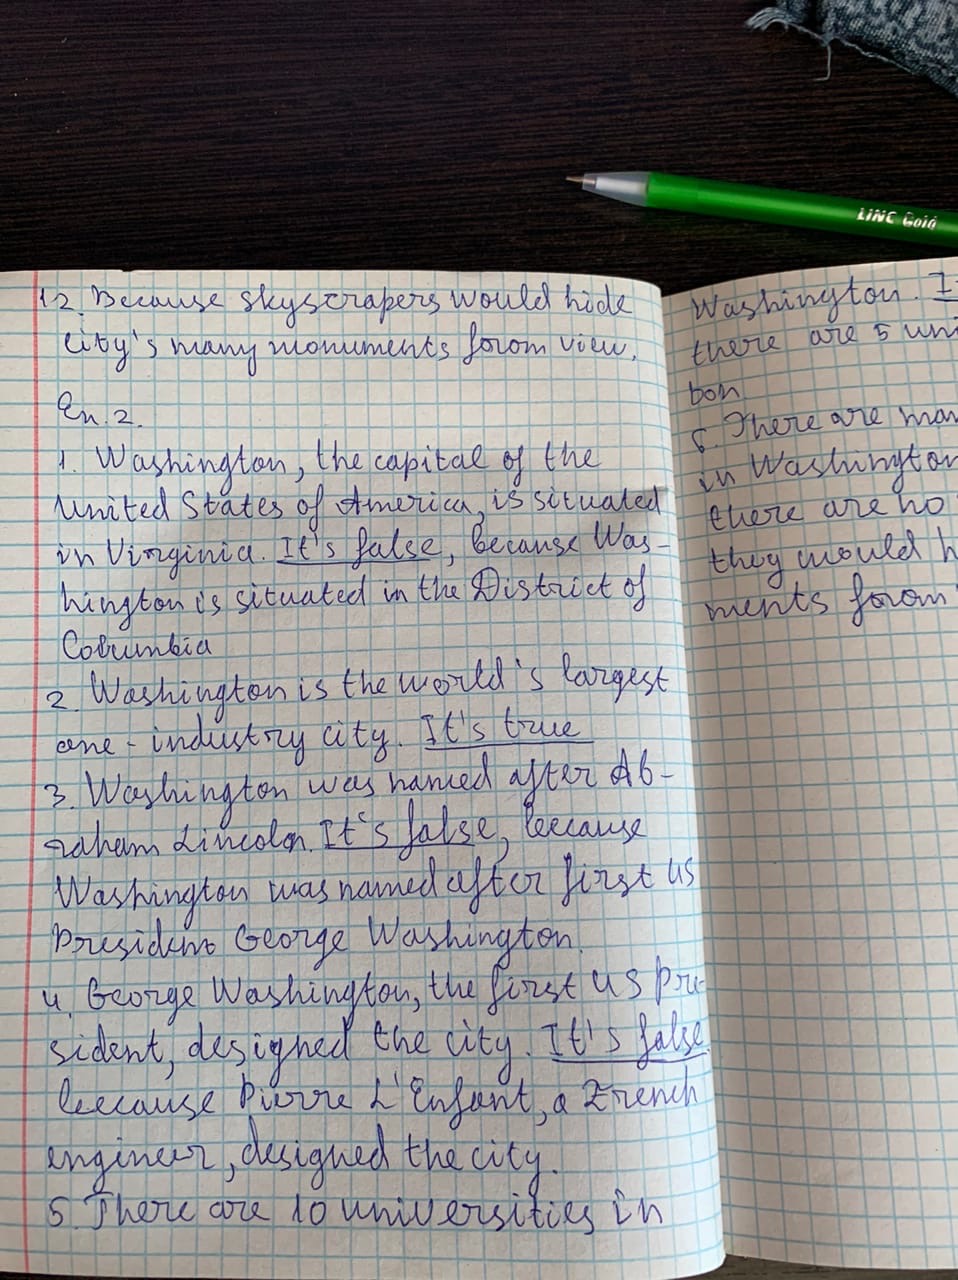 LINC Gold
12. Because skyscrapers would hide
city's many monuments forom view.
Ex. 2.
1. Washington, the capital of the
United States of America, is situated
in Virginia. It's false, because Was-
hington is situated in the District of
Columbia
2. Washington is the world's largest
one-industry city. It's true
3. Washington was named after Ab-
raham Lincoln. It's false, because
Washington was named after first US
President George Washington.
4. George Washington, the first US Pre-
sident, designed the city. It's false
because Pierre L'Enfant, a French
engineer, designed the city.
5. There are 10 universities in
Washington. I
there are 5 uni
ton
6. There are man
in Washington
there are no
they would h
ments forom